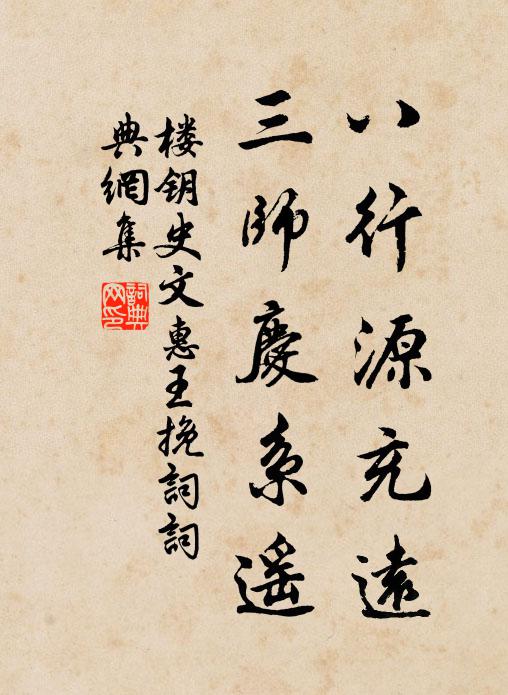 八行源充遠
三師慶系遥
楼钥史文惠王挽詞詞
典網集
詞典
网印